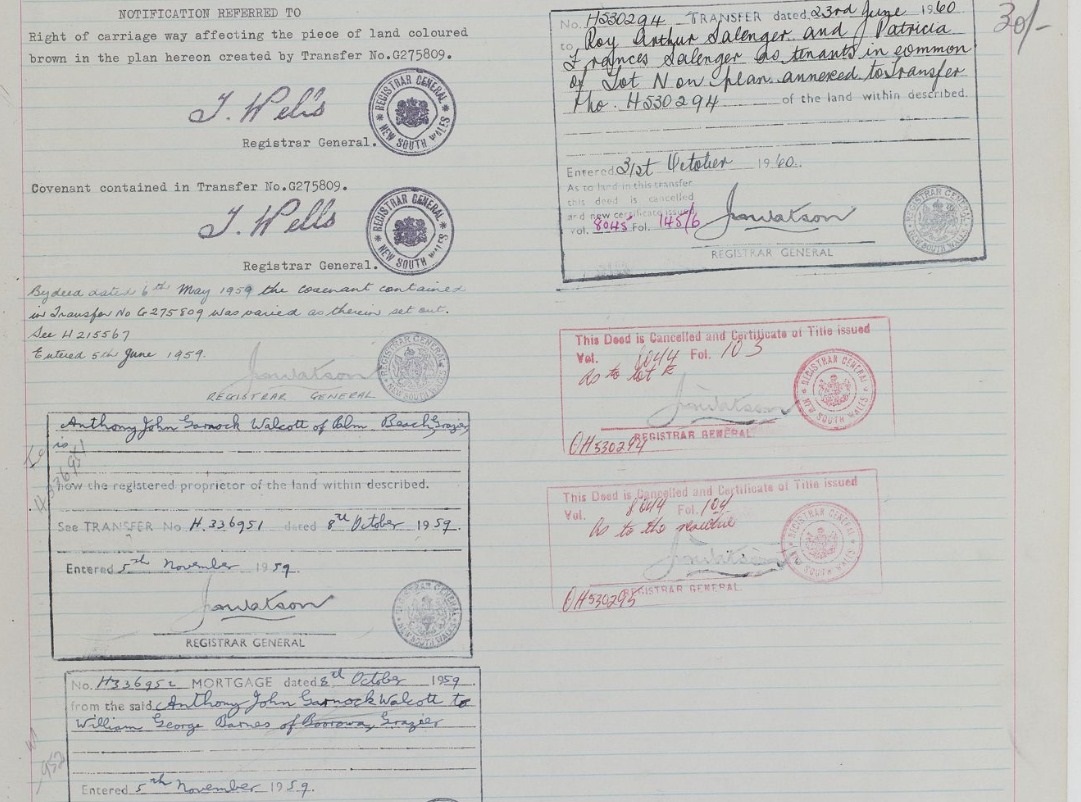 NOTIFICATION REFERRED TO
Right of carriage way affecting the piece of land coloured
brown in the plan hereon created by Transfer No.G275809.
J. Wells
REGISTRAR GENERAL NEW SOUTH WALES
Registrar General.
Covenant contained in Transfer No.G275809.
J. Wells
REGISTRAR GENERAL NEW SOUTH WALES
Registrar General.
By deed dated 6th May 1959 the covenant contained
in Transfer No G275809 was varied as therein set out.
See H215567
Entered 5th June 1959.
Jawatson
REGISTRAR GENERAL
Anthony John Garnock Walcott of Palm Beach, Grazier
is
now the registered proprietor of the land within described.
See TRANSFER No. H.336951 dated 8th October 1959.
Entered 5th November 1959.
Jawatson
REGISTRAR GENERAL
H336951
No. H336952 MORTGAGE dated 8th October 1959
from the said Anthony John Garnock Walcott to
William George Barnes of Boorowa, Grazier
Entered 5th November 1959.
952
30/-
No. H530294 TRANSFER dated 23rd June 1960
to Roy Arthur Salenger and Patricia
Frances Salenger as tenants in common
of Lot N on plan annexed to Transfer
No. H530294 of the land within described.
Entered 31st October 1960.
As to land in this transfer
this deed is cancelled
and new certificate issued
Vol. 8045 Fol. 145/6
Jawatson
REGISTRAR GENERAL
This Deed is Cancelled and Certificate of Title issued
Vol. 8044 Fol. 103
As to lot K
Jawatson
REGISTRAR GENERAL
H530294
This Deed is Cancelled and Certificate of Title issued
Vol. 8044 Fol. 104
As to the residue
Jawatson
REGISTRAR GENERAL
H530295